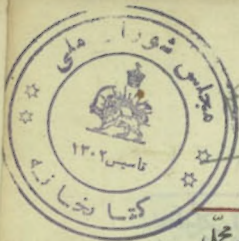 مجلس شورای ملی
تاسیس ۱۳۰۲
کتابخانه